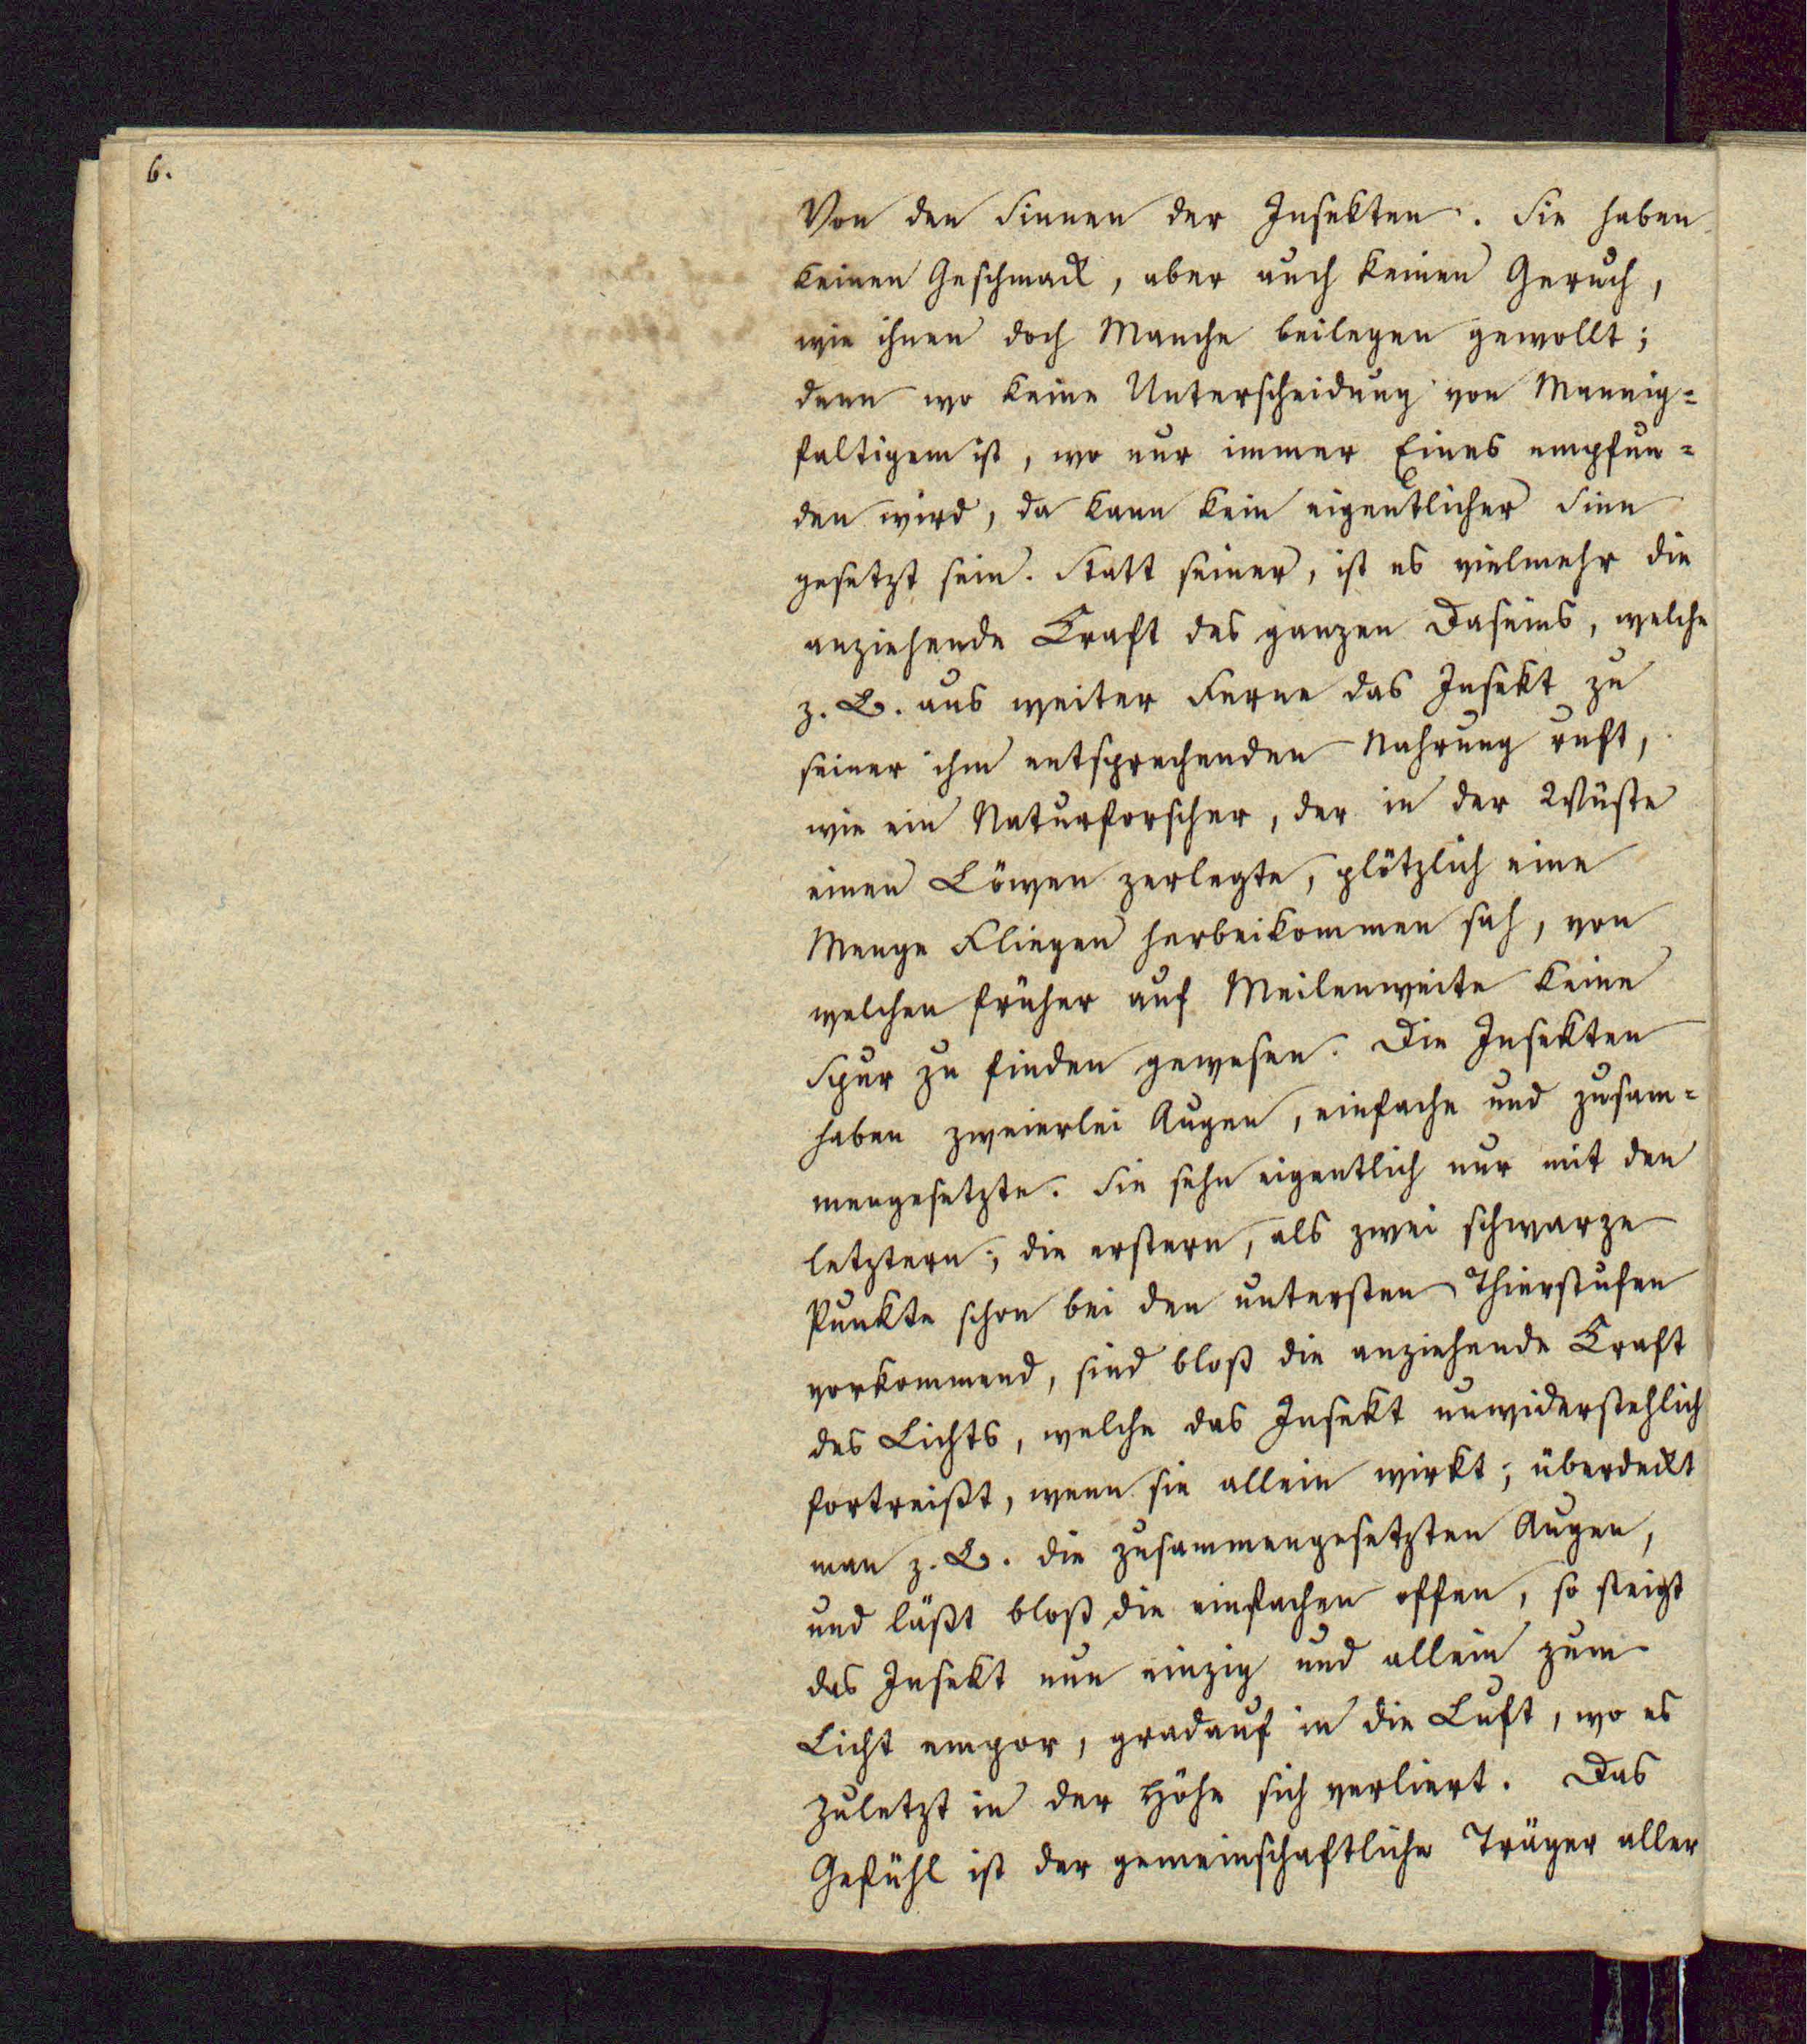 6.
Von den Sinnen der Insekten. Sie haben
keinen Geschmack, aber auch keinen Geruch,
wie ihnen doch Manche beilegen gewollt;
denn wo keine Unterscheidung von Mannig=
faltigem ist, wo nur immer Eines empfun=
den wird, da kann kein eigentlicher Sinn
gesetzt sein. Statt seiner, ist es vielmehr die
anziehende Kraft des ganzen Daseins, welche
z. B. aus weiter Ferne das Insekt zu
seiner ihm entsprechenden Nahrung ruft,
wie ein Naturforscher, der in der Wüste
einen Löwen zerlegte, plötzlich eine
Menge Fliegen herbeikommen sah, von
welchen früher auf Meilenweite keine
Spur zu finden gewesen. Die Insekten
haben zweierlei Augen, einfache und zusam=
mengesetzte. Sie sehn eigentlich nur mit den
letztern; die erstern, als zwei schwarze
Punkte schon bei den untersten Thierstufen
vorkommend, sind bloß die anziehende Kraft
des Lichts, welche das Insekt unwiderstehlich
fortreißt, wenn sie allein wirkt; überdeckt
man z. B. die zusammengesetzten Augen,
und läßt bloß die einfachen offen, so steigt
das Insekt nun einzig und allein zum
Licht empor, gradauf in die Luft, wo es
zuletzt in der Höhe sich verliert. Das
Gefühl ist der gemeinschaftliche Träger aller